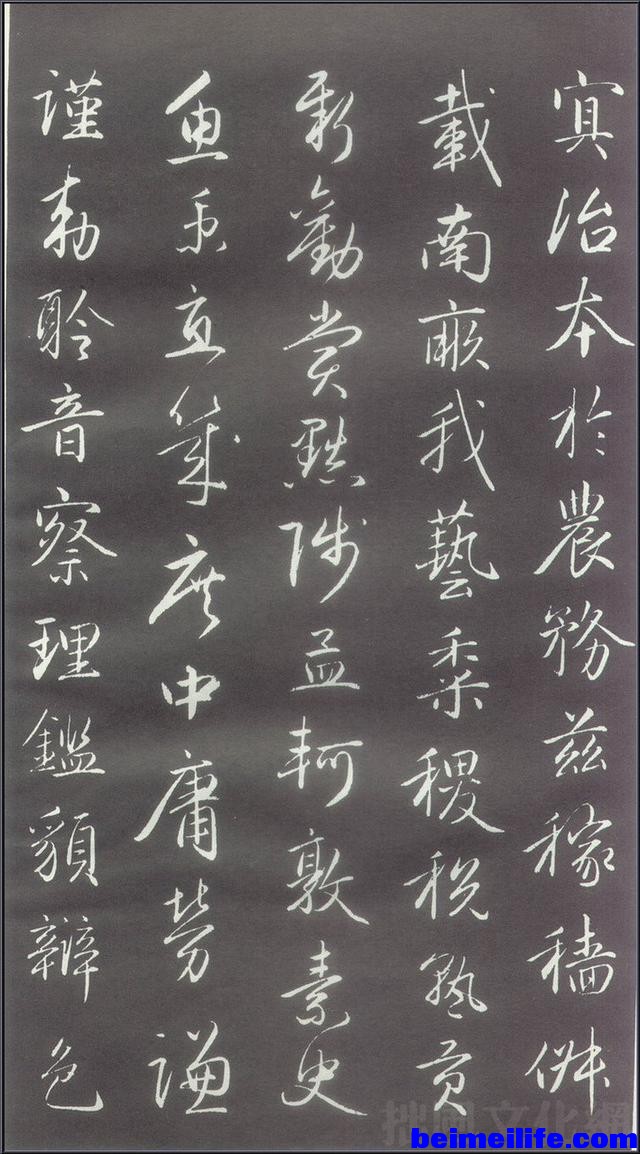 冥治本於農務茲稼穡俶
載南畝我藝黍稷稅熟貢
新勸賞黜陟孟軻敦素史
魚秉直幾庶中庸勞謙
謹勅聆音察理鑑貌辯色
拙風文化網
beimeilife.com